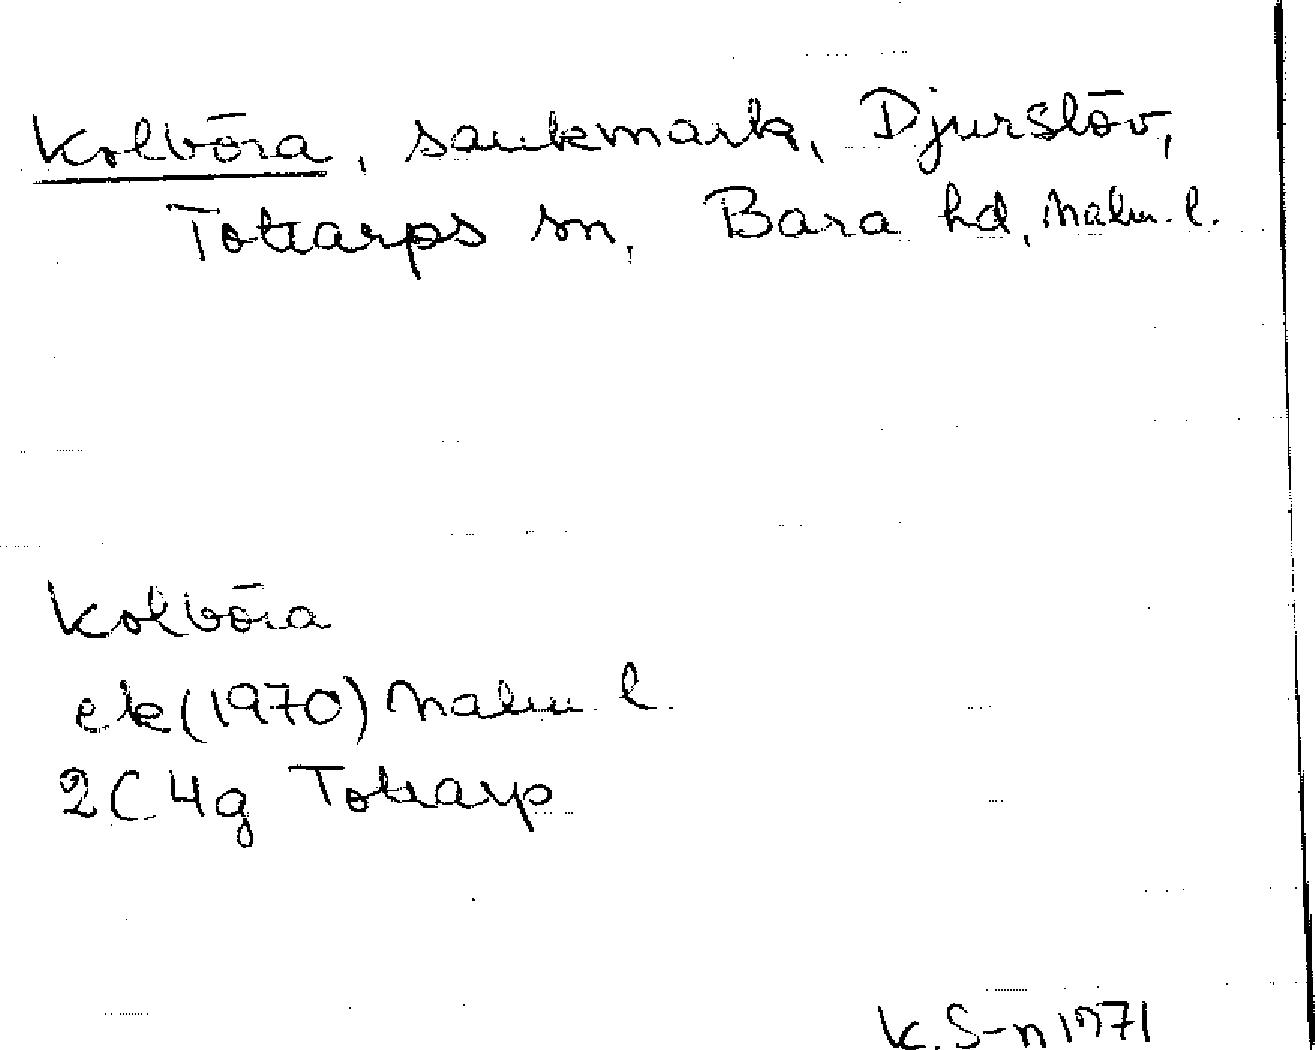 Kolböra, sankmark, Djurslöv,
Tottarps sn, Bara hd, Malm. l.
Kolböra
ek (1970) Malm l.
2C 4g Tottarp
K. S-n 1971